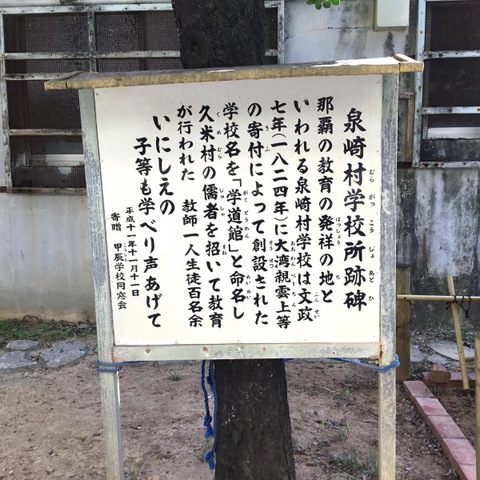 泉崎村学校所跡碑
那覇の教育の発祥の地と
いわれる泉崎村学校は文政
七年(一八二四年)に大湾親雲上等
の寄付によって創設された
学校名を「学道館」と命名し
久米村の儒者を招いて教育
が行われた 教師一人生徒百名余
いにしえの
子等も学べり声あげて
平成十一年十一月十一日
寄贈 甲辰学校同窓会